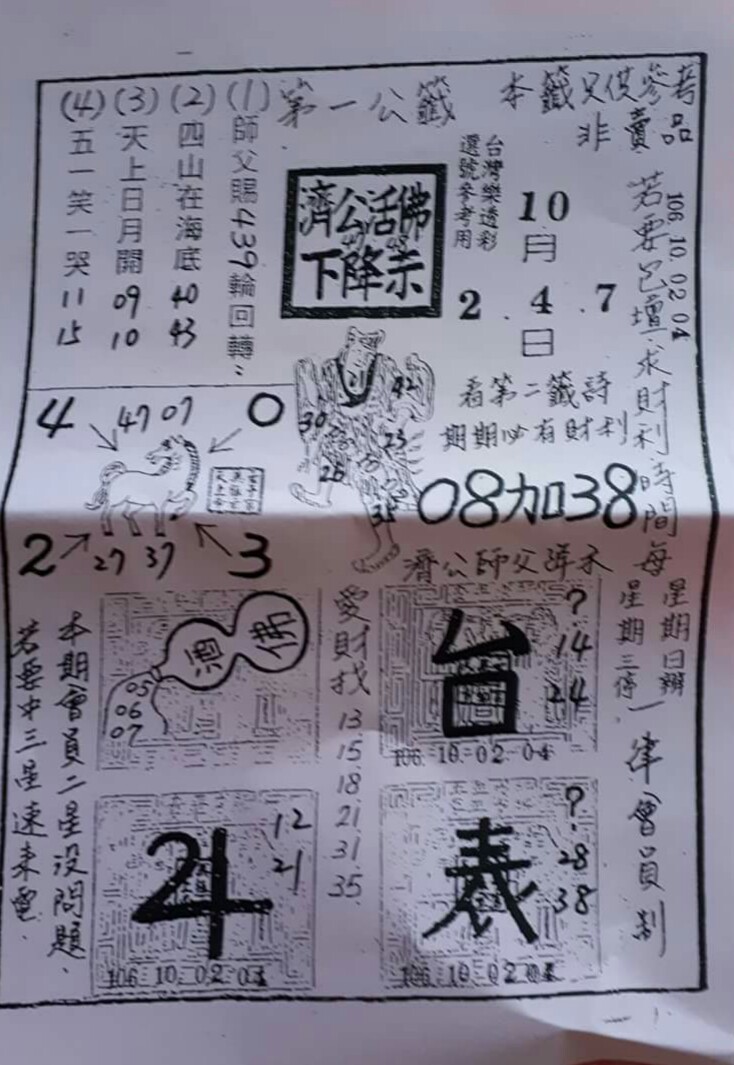 第一公籤
本籤只供參考
非賣品
(1)師父賜439輪回轉
(2)四山在海底 40 43
(3)天上日月開 09 10
(4)五一笑一哭 11 15
濟公活佛
下降示
台灣樂透彩
選號參考用
10月
2.4.7日
106.10.02.04
若要包壇求財利時間每
星期日辦
星期三停
一律會員制
看第二籤詩
期期必有財利
08加38
濟公師父降示
4
47 07
0
2
27 37
3
42
30
23
26
35
佛
05
06
07
愛財找
13
15
18
21
31
35
台
?
14
24
106.10.02.04
12
21
106.10.02.04
表
?
28
38
106.10.02.04
本期會員二星没問題
若要中三星速來電